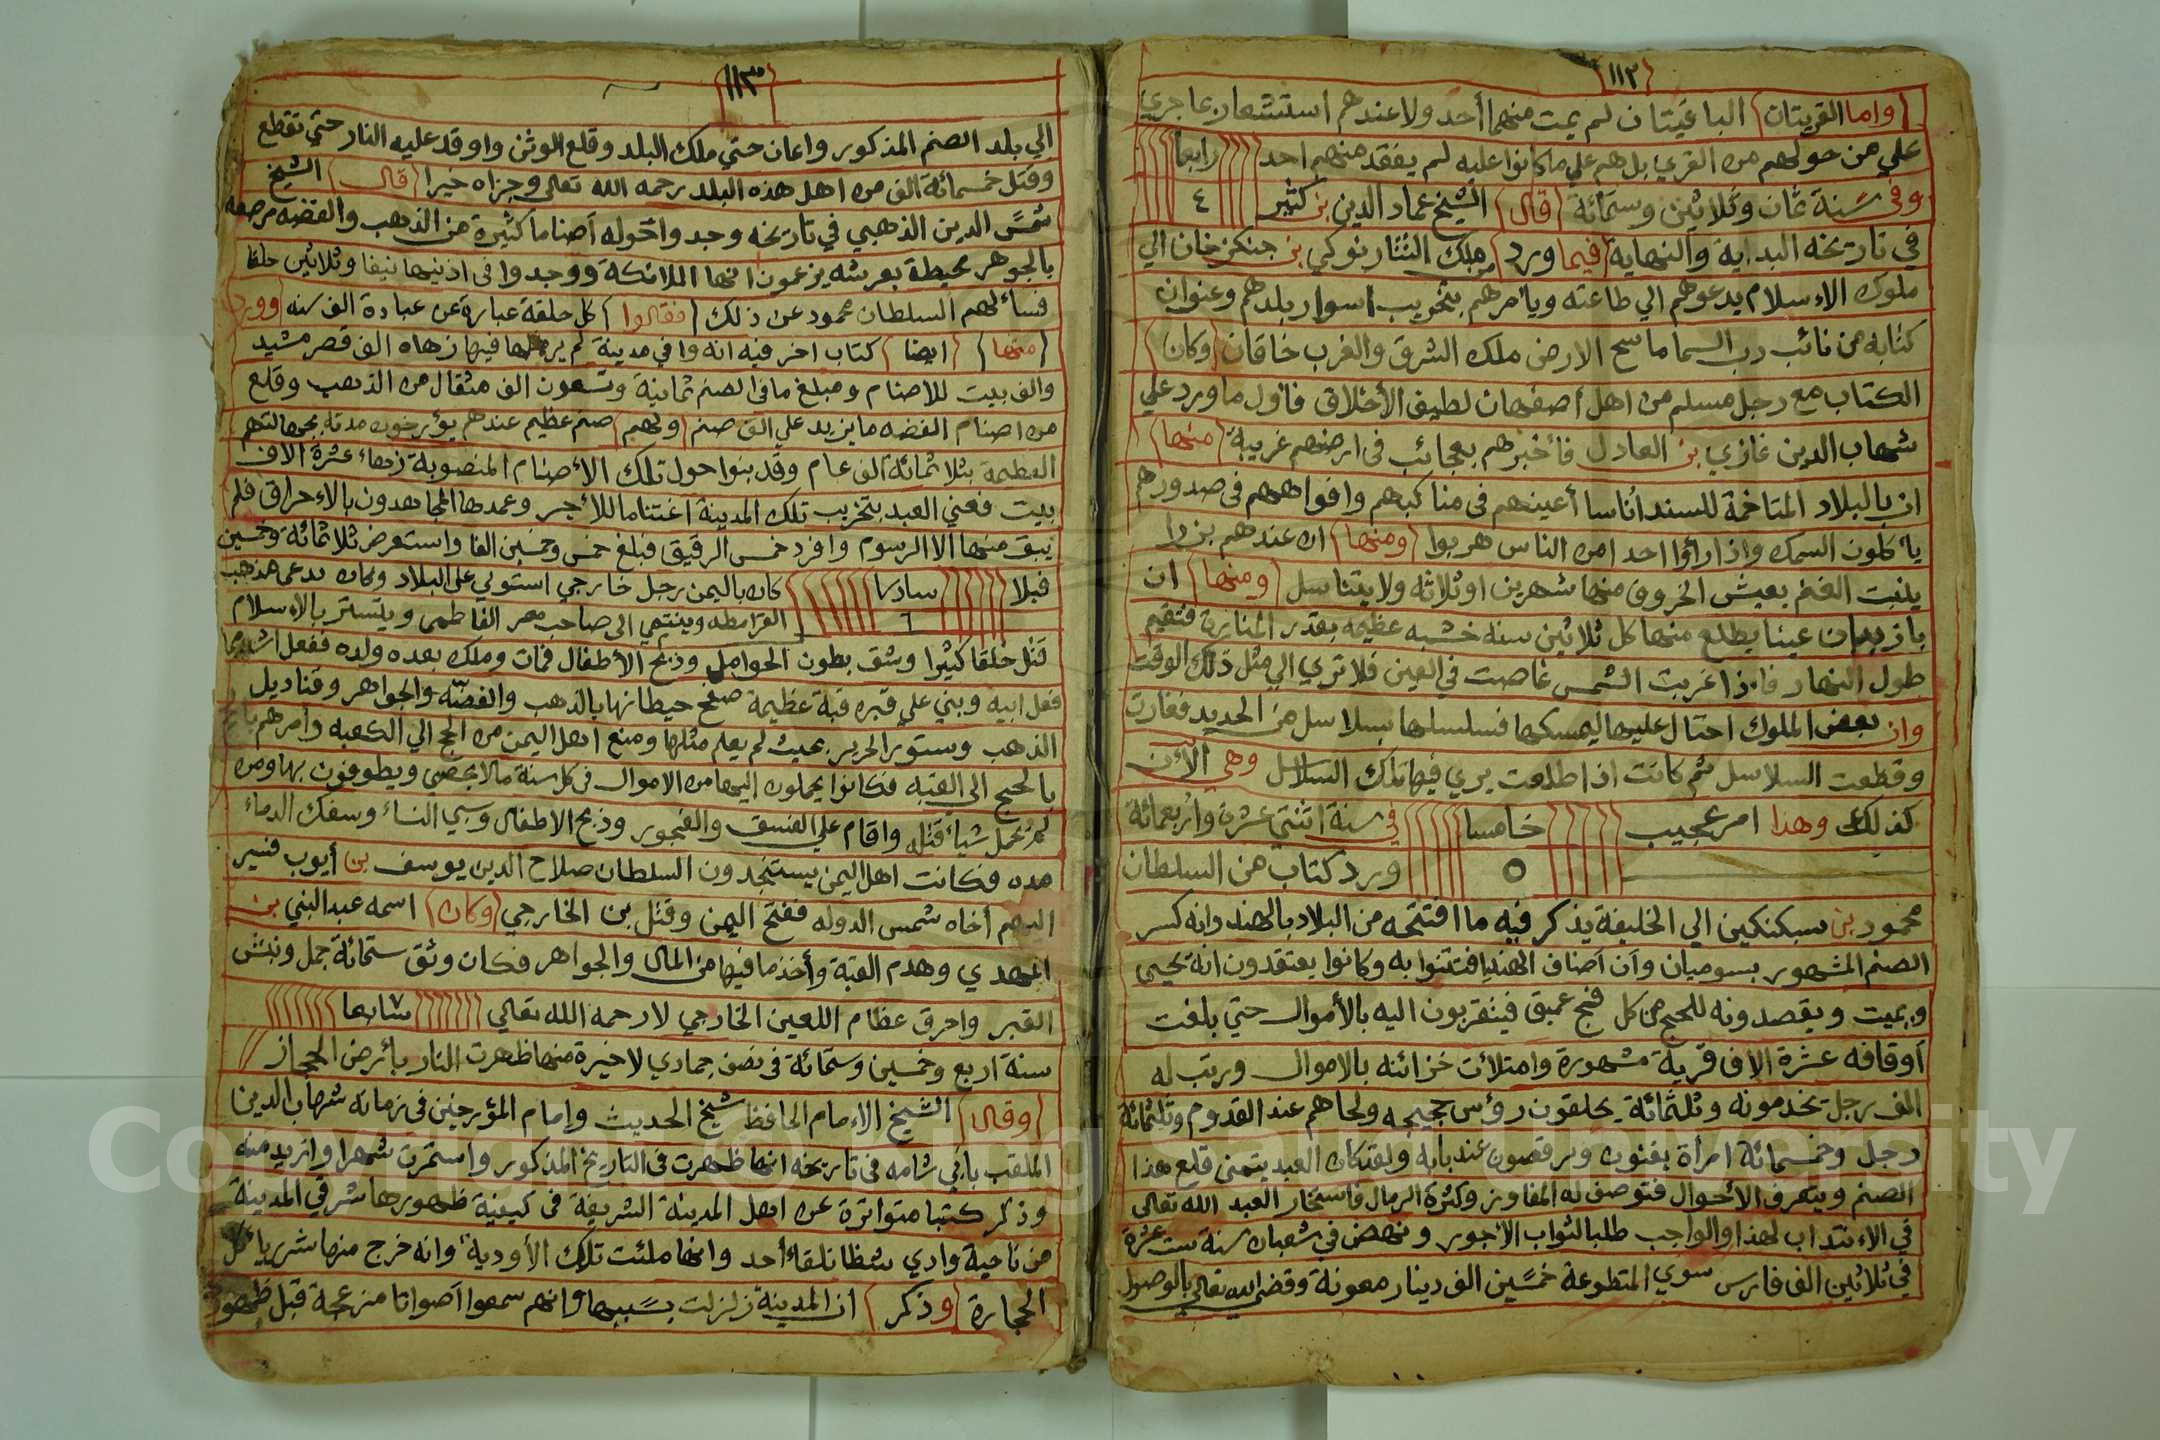 ١١٢
واما القريتان الباغيتان لم يمت منهما أحد ولا عندهم استشعار بما جري
علي من حولهم من القري بل هم علي ما كانوا عليه لم يفقد منهم احد رابعا
وفي سنة ثمان وثلاثين وستمائة قال الشيخ عماد الدين بن كثير ٤
في تاريخه البداية والنهاية فيما ورد من ملك التتار نوكي بن جنكزخان الي
ملوك الاءسلام يدعوهم الي طاعته ويأمرهم بتخريب اسوار بلدهم وعنوان
كتابه من نائب رب السما ماسح الارض ملك الشرق والغرب خاقان وكان
الكتاب مع رجل مسلم من اهل أصفهان لطيف الأخلاق فأول ما ورد علي
شهاب الدين غازي بن العادل فأخبرهم بعجائب في ارضهم غريبة منها
ان بالبلاد المتاخمة للسند أناسا أعينهم في مناكبهم وافواههم في صدورهم
يأكلون السمك واذا رأوا احدا من الناس هربوا ومنها ان عندهم بزرا
ينبت الغنم يعيش الخروف منها شهرين او ثلاثه ولا يتناسل ومنها ان
بازيدان عينا يطلع منها كل ثلاثين سنه خشبه عظيمه بقدر المنارة فتقيم
طول النهار فاءذا غربت الشمس غاصت في العين فلا تري الي مثل ذلك الوقت
وان بعض الملوك احتال عليها ليمسكها فسلسلها بسلاسل من الحديد فغارت
وقطعت السلاسل ثم كانت اذا طلعت يري فيها تلك السلاسل وهي الآن
كذلك وهذا امر عجيب خامسا في سنة اثنتي عشرة وأربعمائة
٥ ورد كتاب من السلطان
محمود بن سبكتكين الي الخليفة يذكر فيه ما افتتحه من البلاد بالهند وانه كسر
الصنم المشهور بسوميان وأن أصناف الهند افتتنوا به وكانوا يعتقدون انه يحيي
ويميت ويقصدونه للحج من كل فج عميق فيتقربون اليه بالأموال حتي بلغت
أوقافه عشرة الاف قرية مشهورة وامتلأت خزائنه بالاموال ورتب له
الف رجل يخدمونه وثلثمائة يحلقون رؤس حجيجه ولحاهم عند القدوم وثلثمائة
رجل وخمسمائة امرأة يغنون ويرقصون عند بابه ولقد كان العبد يتمني قلع هذا
الصنم ويتعرف الأحوال فتوصف له المفاوز وكثرة الرمال فاستخار العبد الله تعالي
في الاءنتداب لهذا والواجب طلبا لثواب الأجور ونهض في شعبان سنة ست عشرة
في ثلاثين الف فارس سوي المتطوعة خمسين الف دينار معونة وقضي الله تعالي بالوصول
١١٣
الي بلد الصنم المذكور واعان حتي ملك البلد وقلع الوثن واوقد عليه النار حتي تقطع
وقتل خمسمائة الف من اهل هذه البلد رحمه الله تعالي وجزاه خيرا قال الشيخ
شمس الدين الذهبي في تاريخه وجد واحوله أصناما كثيرة من الذهب والفضه مرصعه
بالجوهر محيطة بعرشه يزعمون انها الملائكة ووجدوا في اذنيها نيفا وثلاثين حلقا
فسألهم السلطان محمود عن ذلك فقالوا كل حلقة عبارة عن عبادة الف سنه وورد
منها ايضا كتاب اخر فيه انه وافي مدينة لم ير مثلها فيها زهاه الف قصر مشيد
والف بيت للاصنام ومبلغ ما في الصنم ثمانية وتسعون الف مثقال من الذهب وقلع
من اصنام الفضه ما يزيد علي الف صنم ولهم صنم عظيم عندهم يؤرخون مدته بجهالتهم
العظيمة بثلاثمائة الف عام وقد بنوا حول تلك الأصنام المنصوبة زهاء عشرة الاف
بيت فعني العبد بتخريب تلك المدينة اغتناما للأجر وعمدها المجاهدون بالاءحراق فلم
يبق منها الا الرسوم وافرد خمس الرقيق فبلغ خمس وخمسين الفا واستعرض ثلاثمائة وخمسين
فيلا سادسا كان باليمن رجل خارجي استولي علي البلاد وكان يدعي مذهب
٦ القرامطه وينتمي الي صاحب مصر الفاطمي ويتستر بالاءسلام
قتل خلقا كثيرا وشق بطون الحوامل وذبح الأطفال فمات وملك بعده ولده ففعل اشد مما
فعل ابيه وبني علي قبره قبة عظيمة صفح حيطانها بالذهب والفضة والجواهر وقناديل
الذهب وستور الحرير بحيث لم يعلم مثلها ومنع اهل اليمن من الحج الي الكعبه وأمرهم بالحج
بالحج الي القبة فكانوا يحملون اليها من الاموال في كل سنة ما لا يحصي ويطوفون بها ومن
لم يحمل شيأ قتله واقام علي الفسق والفجور وذبح الاطفال وسبي النساء وسفك الدماء
مده فكانت اهل اليمن يستنجدون السلطان صلاح الدين يوسف بن أيوب فسير
اليهم أخاه شمس الدوله ففتح اليمن وقتل بن الخارجي وكان اسمه عبد النبي بن
المهدي وهدم القبة وأخذ ما فيها من المال والجواهر فكان وثق ستمائة جمل ونبش
القبر واحرق عظام اللعين الخارجي لا رحمه الله تعالي سابعا ٧
سنة اربع وخمسين وستمائة في نصف جمادي لاخيرة منها ظهرت النار بأرض الحجاز
وقال الشيخ الاءمام الحافظ شيخ الحديث وإمام المؤرخين في زمانه شهاب الدين
الملقب بأبي شامه في تاريخه انها ظهرت في التاريخ المذكور واستمرت شهرا وازيد منه
وذكر كتبا متواترة عن اهل المدينة الشريفة في كيفية ظهورها شرقي المدينة
من ناحية وادي شظا تلقاء أحد وانها ملئت تلك الأودية وانه خرج منها شرر يأكل
الحجارة وذكر ان المدينة زلزلت بسببها وانهم سمعوا أصواتا مزعجة قبل ظهور
Copyright © King Saud University